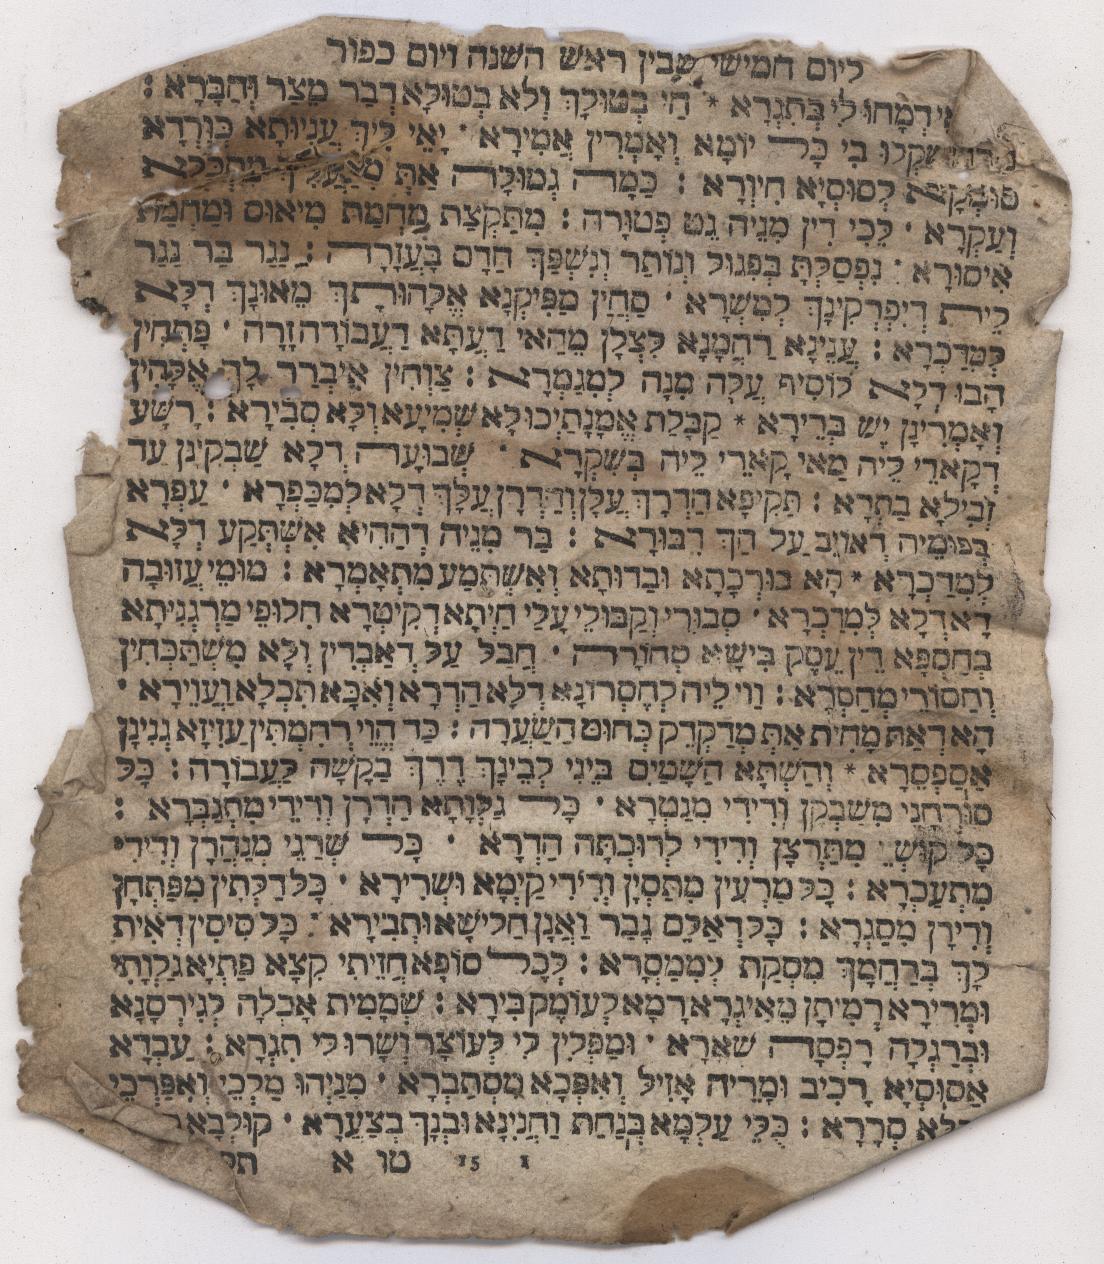 ליום חמישי שבין ראש השנה ויום כפור
דִמָחוּ לִי בְּתִגְרָא * חַי בְּטוּלָךְ וְלֹא בְּטוּלָא דְבַר מֵצַר וְהַבָּרָא :
בִי כָּל יוֹמָא וְאָמְרִין אֲמִירָא · יָאֵי לִיךְ עֲנִיּוּתָא כְּוַרְדָא
סוּמָקָא לְסוּסְיָא חִיוְרָא : כַּמָּה גְמוּלָה אַתְּ
וְעַקְרָא · לְכִי דִין מִנֵּיהּ גֵט פְּטוּרָהּ : מִתְקַצַּת מֵחֲמַת מִיאוּס וּמֵחֲמַת
אִיסוּרָא · נִפְסַלְתָּ בְּפִגּוּל וְנוֹתַר וְנִשְׁפַּךְ הַדָּם בָּעֲזָרָה : נַגַּר בַּר נַגַּר
לֵית דְּיִפְרְקִינָךְ לְמִשְׁרָא · סַחֲיִן מַפִּיקְנָא אֱלָהוּתָךְ מֵאוּנָךְ דְלָא
לְמִדְכְּרָא : עֲנֵינָא רַחֲמָנָא לְצְלָן מֵהַאי דַעְתָּא דַעֲבוֹדָה זָרָה · פַּתְחִין
הָבוּ דְלָא לוֹסִיף עֲלַהּ מִנָּהּ לְמִגְמְרָא : צָוְחִין אִיבְרַר לָךְ אֱלָהִין
וְאָמְרִינָן יֵשׁ בְּרֵירָא * קַבָּלַת אֱמָנָתֵיכוּ לָא שְׁמִיעָא וְלָא סְבִירָא : רָשָׁע
דְקָארֵי לֵיהּ מַאי קָארֵי לֵיהּ בְּשִׁקְרָא · שְׁבוּעָה דְלָא שַׁבְקִינָן עַד
זְבִילָא בַתְרָא : תַּקִּיפָא הַדְרָךְ עֲלָן וְהַדְרָן עֲלָךְ דְלָא לְמִכַּפְּרָא · עַפְרָא
בְּפוּמֵיהּ דְאִיּוֹב עַל הַךְ דִּבּוּרָא : בַּר מִנֵּיהּ דְהַהִיא אִשְׁתְּקַע דְלָא
לְמִדְכְּרָא * הָא בוּרְכָתָא וּבַדוּתָא וְאִשְׁתְּמַע מִתְאַמְרָא : מוּמֵי עֲזוּבָה
דָא דְלָא לְמִדְכְּרָא · סְבוּרֵי וְקַבּוּלֵי עָלַי חַיְתָא דְקִיטְרָא חִלּוּפֵי מַרְגָנִיתָא
בְּחַסְפָּא דֵין עֵסֶק בִּישָׁא סְחוֹרָה · חֲבָל עַל דְאָבְדִין וְלָא מִשְׁתַּכְּחִין
וְחַסּוֹרֵי מְחַסְּרָא : וַוי לֵיהּ לְחֶסְרוֹנָא דְלָא הַדְרָא וְאִבָּא תִכְלָא וַעֲוִירָא ·
הָא דְאַתְּ מֵחִית אַתְּ מְדַקְדֵּק כְּחוּט הַשַּׂעֲרָה : כַּד הֲוֵי רְחִמְתִּין עַזִּיזָא גְנִינָן
אַסַּפְסֵרָא * וְהַשְׁתָּא הַשָּׁמַיִם בֵּינִי לְבֵינָךְ דֶּרֶךְ בַּקָּשָׁה לַעֲבוֹרָה : כָּל
סוּרְחָנֵי מִשַׁבְקָן וְדִידִי מִנַּטְרָא · כָּל גַּלְוָתָא הַדְרָן וְדִידִי מִתְגַּבְּרָא :
כָּל קוּשְׁיֵי מִתַּרְצָן וְדִידִי לְדוּכְתָּהּ הַדְרָא · כָּל שְׁרַגֵּי מְנַהֲרָן וְדִידִי
מִתְעַכְרָא : כָּל מַרְעִין מִתַּסְיָן וְדִידִי קַיְמָא וּשְׁרִירָא · כָּל דַּלְתִין מִפַּתְּחָן
וְדִידָן מִסַּגְּרָא : כָּל דְאַלֵּם גָּבַר וַאֲנָן חַלִּישָׁא וּתְבִירָא · כָּל סִיסִין דְאִית
לָךְ בְּרַחֲמָךְ מִסָּקַת לְמִמְסְרָא : לְכָל סוֹפָא חֲזִיתִי קִצָּא פַּתְיָא גָלְוָתִי
וּמְרִירָא רְמִיתָן מֵאִיגְרָא רָמָא לְעוּמְקָ בִּירָא : שְׁמָמִית אָכְלָה לְגִירְסָנָא
וּבְרַגְלָהּ רָפְסָה שְׁאָרָא · וּמַפְּלִין לִי לְעוֹצָר וְשָׁרוּ לִי תִגְרָא : עַבְדָא
אַסּוּסְיָא רָכִיב וּמָרֵיהּ אָזִיל וְאִפְּכָא מִסְתַּבְּרָא · מִנַּיְהוּ מַלְכֵי וְאִפַּרְכֵי
סְרָרָא : כֻּלֵּי עַלְמָא בְּנַחַת וַחֲנִינָא וּבְנָךְ בְּצַעֲרָא ·
טו א 15 1